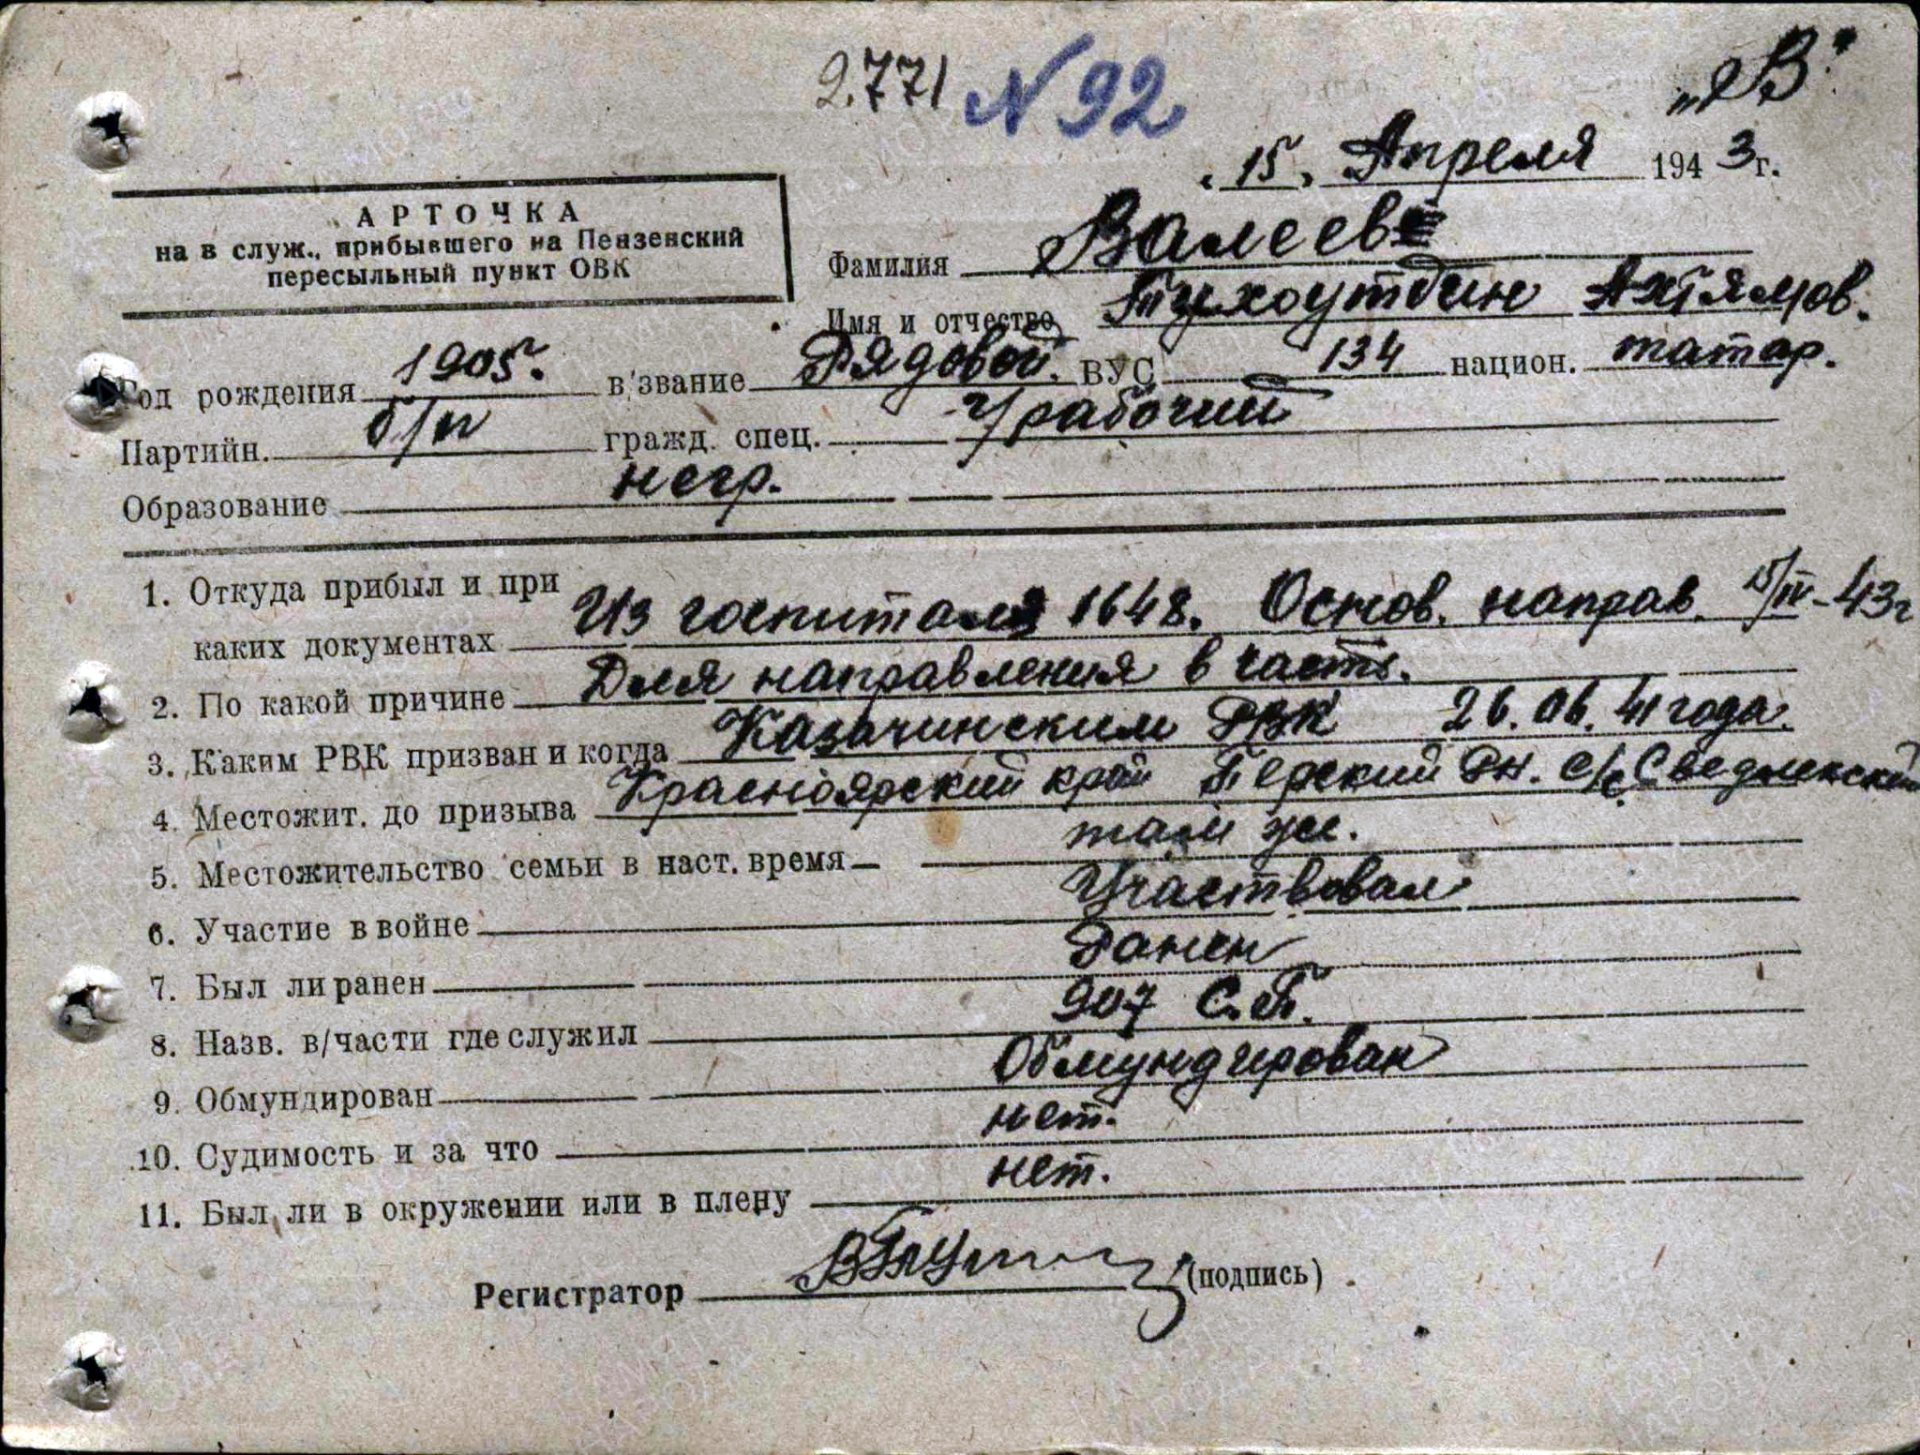 2.771 N 92
"В"
"15" Апреля 1943 г.
АРТОЧКА
на в служ., прибывшего на Пензенский
пересыльный пункт ОВК
Фамилия Валеев
Имя и отчество Ахтямов.
Год рождения 1905. в/звание Рядовой. ВУС 134 национ. татар.
Партийн. б/п гражд. спец. Ч/рабочий
Образование негр.
1. Откуда прибыл и при
каких документах Из госпиталя 1648. Основ. направ. 15/IV-43г
2. По какой причине Для направления в часть.
3. Каким РВК призван и когда Казачинским РВК 26.06.41 года.
4. Местожит. до призыва Красноярский край Рн. с/с
5. Местожительство семьи в наст. время там же.
6. Участие в войне Участвовал
7. Был ли ранен Ранен
8. Назв. в/части где служил 907 С.П.
9. Обмундирован Обмундирован
10. Судимость и за что нет.
11. Был ли в окружении или в плену нет.
Регистратор (подпись)